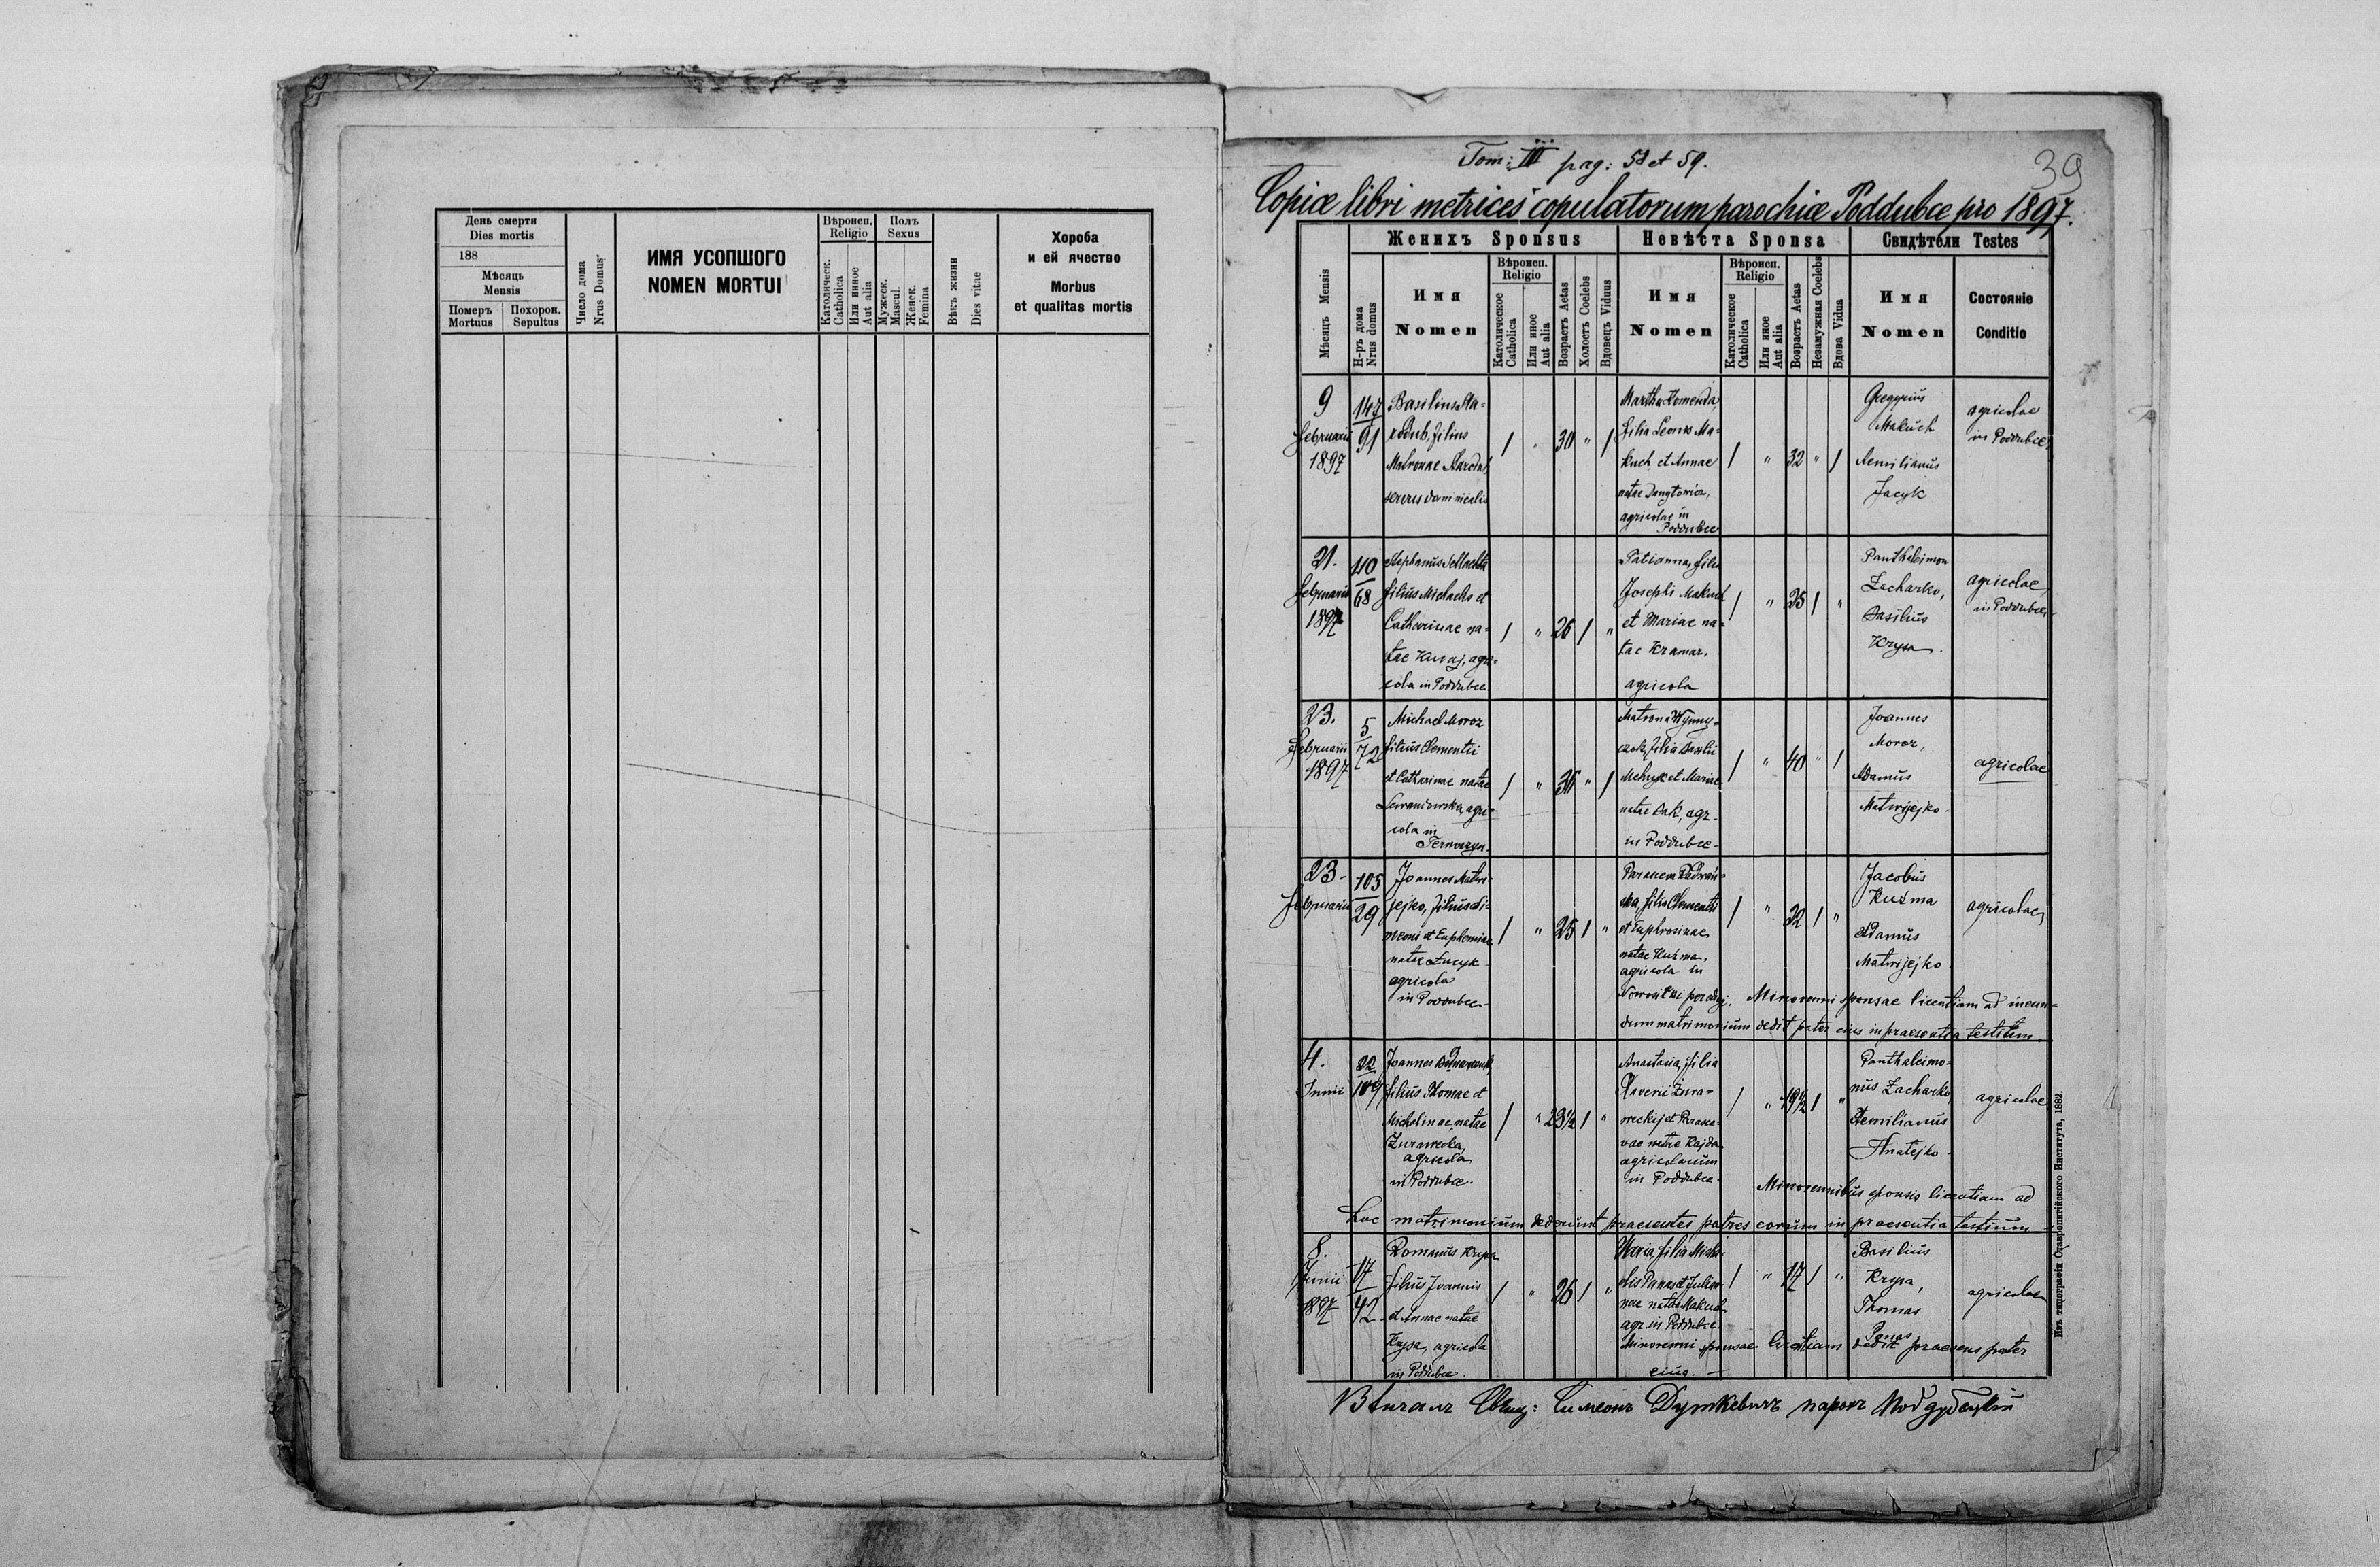 День смерти
Dies mortis
188
Мѣсяць
Mensis
Померъ
Mortuus
Похорон.
Sepultus
Число дома
Nrus Domus
ИМЯ УСОПШОГО
NOMEN MORTUI
Вѣроисп.
Religio
Католическ.
Catholica
Или иное
Aut alia
Полъ
Sexus
Мужеск.
Mascul.
Женск.
Femina
Вѣкъ жизни
Dies vitae
Хороба
и ей ячество
Morbus
et qualitas mortis
39
Tom: III pag: 58 et 59.
Copiae libri metrices copulatorum parochiae Poddubce pro 1897.
Женихъ Sponsus
Невѣста Sponsa
Свидѣтели Testes
Мѣсяцъ Mensis
Н-ръ дома
Nrus domus
Имя
Nomen
Вѣроисп.
Religio
Католическое
Catholica
Или иное
Aut alia
Возрастъ Aetas
Холостъ Coelebs
Вдовецъ Viduus
Имя
Nomen
Вѣроисп.
Religio
Католическое
Catholica
Или иное
Aut alia
Возрастъ Aetas
Незамужная Coelebs
Вдова Vidua
Имя
Nomen
Состоянie
Conditio
9
Februarii
1897
147
91
Basilius Sta-
rodub, filius
Matronae
1 " 30 " 1
Martha
filia Leonis Ma-
kuch et Annae
natae
agricolae in
Poddubce
1 " 32 " 1
Gregorius
Makuch
Aemilianus
Jacyk
agricolae
in Poddubce
21.
Februarii
1897
110
68
Stephanus
filius Michaelis et
Catharinae na-
tae agri-
cola in Poddubce
1 " 26 1 "
Tatianna, filia
Josephi Makuch
et Mariae na-
tae Kramar,
agricola
1 " 25 1 "
Panthaleimon
Zacharko,
Basilius
Krysa.
agricolae
in Poddubce
23.
Februarii
1897
5
72
Michael Moroz
filius Clementii
et Catharinae natae
agri-
cola in
1 " 36 " 1
Matrona
filia Basilii
et Mariae
natae agr.
in Poddubce
1 " 40 " 1
Joannes
Moroz,
Adamus
Matwijejko
agricolae
23
Februarii
105
29
Joannes Matwi-
jejko, filius Si-
meoni et Euphemiae
natae
agricola
in Poddubce
1 " 25 1 "
filia Clementii
et Euphrosinae
natae Kuźma,
agricola in
1 " 22 1 "
Jacobus
Kuźma
Adamus
Matwijejko
agricolae
Minorenni sponsae licentiam ad ineun-
dum matrimonium dedit pater eius in praesentia testium
4.
Junii
22
109
Joannes
filius Thomae et
Michalinae natae
Żurawecka,
agricola
in Poddubce.
1 " 23½ 1 "
Anastasia, filia
Xaverii Żura-
weckij et Parasce-
vae natae Kajda
agricolarum
in Poddubce
1 " 19½ 1 "
Panthaleimo-
nus Zacharko,
Aemilianus
agricolae
Minorennibus sponsis licentiam ad
hoc matrimonium dederunt praesentes patres eorum in praesentia testium
8.
Junii
1897
17
42
Romanus Krysa
filius Joannis
et Annae natae
Krysa, agricola
in Poddubce.
1 " 26 1 "
Maria, filia Micha-
elis Panas et Julian-
nae natae Makuch
agr. in Poddubce.
1 " 17 1 "
Basilius
Krysa,
Thomas
Panas
agricolae
Minorenni sponsae licentiam dedit praesens pater
eius.
Вѣнчалъ Симеонъ Дуткевичъ парохъ Поддубецкій
Изъ типографіи Ставропигійского Института, 1882.